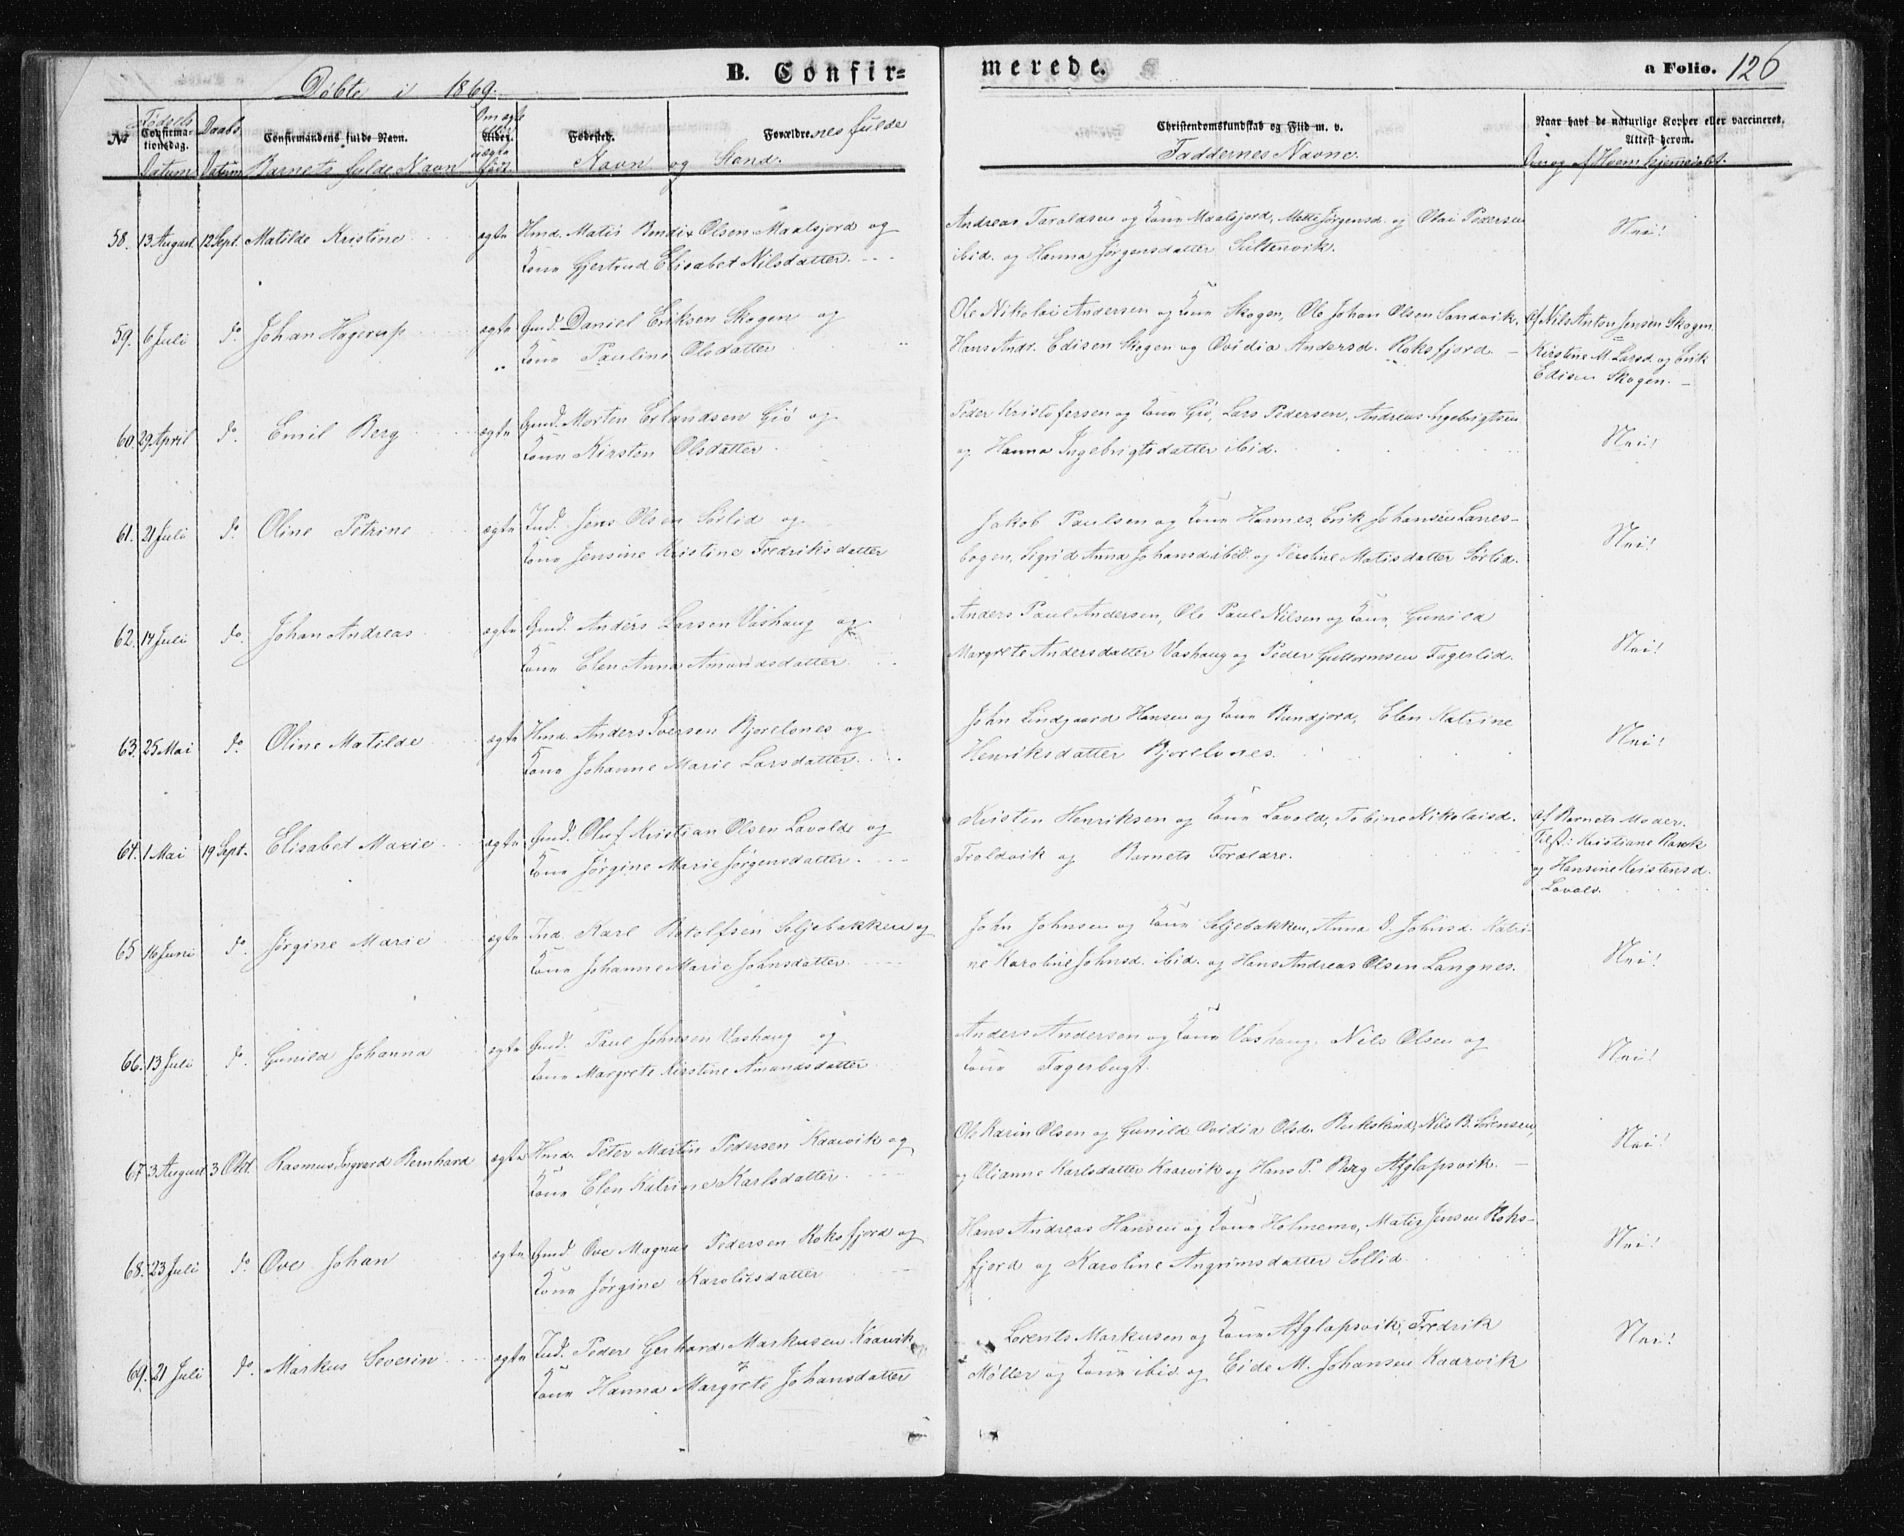 Døbte i 1869.
B. Confirmerede.
a Folio. 126
No
Fødsels Datum
Confirmationsdag.
Daabs Datum
Confirmandens fulde Navn.
Barnets fulde Navn
Om ægte eller uægte født.
Alder.
Fødested.
Forældrenes fulde
Navn og Stand.
Christendomskundskab og Flid m. v.
Faddernes Navne.
Naar havt de naturlige Kopper eller vaccineret. Attest herom.
Om og af Hvem hjemmedøbt.
58. 13 August 12 Sept. Matilde Kristine ægte Hmd. Matis Bendix Olsen Maalsjord og
Kone Gjertrud Elisabet Nilsdatter.
Andreas Taraldsen og Kone Maalsjord, Mette Jørgensd. og Olai Pedersen
ibid. og Hanna Jørgensdatter Sultenvik.
Nei!
59. 6 Juli do. Johan Hagerup ægte Gmd. Daniel Eriksen Skogen og
Kone Pauline Olsdatter
Ole Nikolai Andersen og Kone Skogen, Ole Johan Olsen Sandvik,
Hans Andr. Edisen Skogen og Ovidia Andersd. Roksfjord.
Af Nils Anton Jensen Skogen
Kirstine M. Larsd. og Erik
Edisen Skogen.
60. 29 April do. Emil Berg ægte Gmd. Morten Erlandsen Gjø og
Kone Kirsten Olsdatter
Peder Kristofersen og Kone Gjø, Lars Pedersen, Andreas Ingebrigtsen
og Hanna Ingebrigtsdatter ibid.
Nei!
61. 21 Juli do. Oline Petrine ægte Ind. Jens Olsen Sørlid og
Kone Jensine Kristine Fredriksdatter
Jakob Paulsen og Kone Hannes, Erik Johansen Lanes-
bogen, Sigrid Anna Johansd. ibid. og Perstine Matisdatter Sørlid.
Nei!
62. 14 Juli do. Johan Andreas ægte Gmd. Anders Larsen Vashaug og
Kone Elen Anna Amundsdatter
Anders Paul Andersen, Ole Paul Nilsen og Kone, Gunild
Margrete Andersdatter Vashaug og Peder Guttormsen Fagerlid.
Nei!
63. 25 Mai do. Oline Matilde ægte Hmd. Anders Iversen Bjorelvnes og
Kone Johanne Marie Larsdatter
John Lindgaard Hansen og Kone Bundjord, Elen Katrine
Henriksdatter Bjorelvnes.
Nei!
64. 1 Mai 19 Sept. Elisabet Marie ægte Gmd. Oluf Kristian Olsen Lavold og
Kone Jørgine Marie Jørgensdatter
Kristen Henriksen og Kone Lavold, Tobine Nikolaisd.
Troldvik og Barnets Forældre.
Af Barnets Moder.
Tilst: Kristiane Rask
og Hansine Kristensd.
Lavols.
65 16 Juni do. Jørgine Marie ægte Ind. Karl Botolfsen Seljebakken og
Kone Johanne Marie Johnsdatter
John Johnsen og Kone Seljebakken, Anna D. Johnsd. Katri-
ne Karoline Johnsd. ibid. og Hans Andreas Olsen Langnes.
Nei!
66. 13 Juli do. Gunild Johanna ægte Gmd. Paul Johnsen Vashaug og
Kone Margrete Kirstine Amundsdatter
Anders Andersen og Kone Vashaug, Nils Olsen og
Kone Fagerbugt.
Nei!
67. 3 August 3 Okt. Rasmus Ingvard Bernhard ægte Hmd. Peter Martin Pedersen Kaarvik og
Kone Elen Katrine Karlsdatter
Ole Karin Olsen og Gunild Ovidia Olsd. Bukskind, Nils B. Sørensen,
og Olianne Karlsdatter Kaarvik og Hans P. Berg Afglapsvik.
Nei!
68. 23 Juli do. Ove Johan ægte Gmd. Ove Magnus Pedersen Roksfjord og
Kone Jørgine Karoliusdatter
Hans Andreas Hansen og Kone Holmemo, Matis Jensen Roks-
fjord og Karoline Angrimsdatter Sollid.
Nei!
69. 21 Juli do. Markus Severin ægte Ind. Peder Gerhard Markusen Kaarvik og
Kone Hanna Margrete Johansdatter
Lorents Markusen og Kone Afglapsvik, Fredrik
Møller og Kone ibid og Eide M. Johansen Kaarvik
Nei!